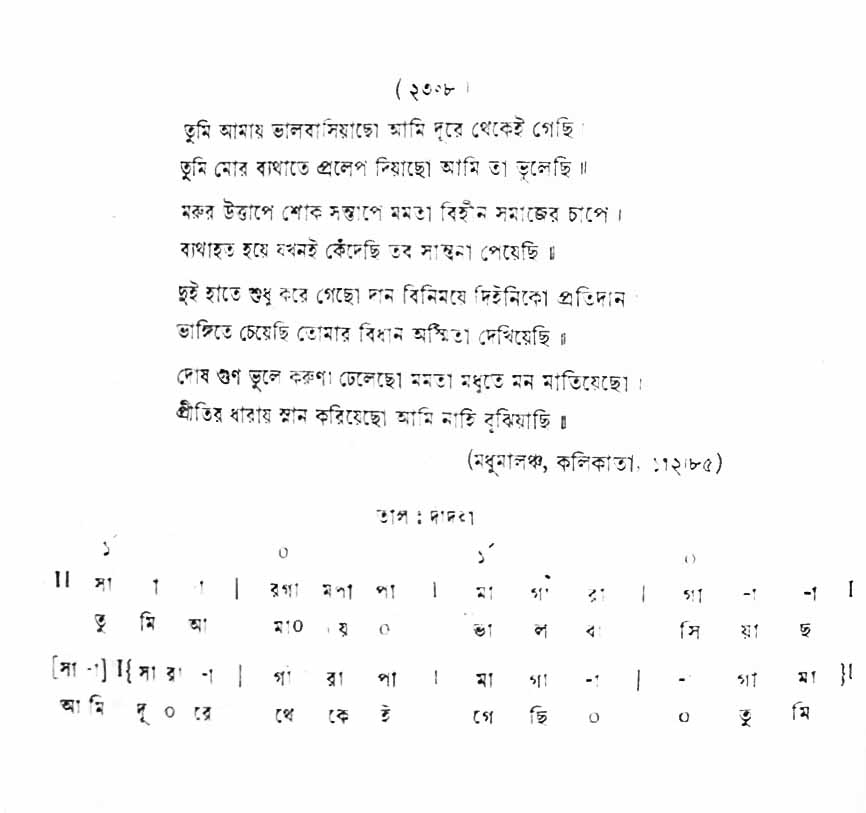 ( ২৩০৮ ।
তুমি আমায় ভালবাসিয়াছো আমি দূরে থেকেই গেছি
তুমি মোর ব্যথাতে প্রলেপ দিয়াছো আমি তা ভুলেছি ॥
মরুর উত্তাপে শোক সন্তাপে মমতা বিহীন সমাজের চাপে ।
ব্যথাহত হয়ে যখনই কেঁদেছি তব সান্ত্বনা পেয়েছি ॥
দুই হাতে শুধু করে গেছো দান বিনিময়ে দিইনিকো প্রতিদান
ভাঙ্গিতে চেয়েছি তোমার বিধান অস্মিতা দেখিয়েছি ॥
দোষ গুণ ভুলে করুণা ঢেলেছো মমতা মধুতে মন মাতিয়েছো ।
প্রীতির ধারায় স্নান করিয়েছো আমি নাহি বুঝিয়াছি ॥
(মধুমালঞ্চ, কলিকাতা,
তাল : দাদরা
১´ ০ ১´ ০
II সা া া | রগা মপা পা | মা গা রা | গা -া -া I
তু মি আ মা০ য় ০ ভা ল বা সি য়া ছ
[সা -া] I{ সা রা -া | গা রা পা | মা গা -া | -া গা মা }I
আ মি দূ ০ রে থে কে ই গে ছি ০ ০ তু মি